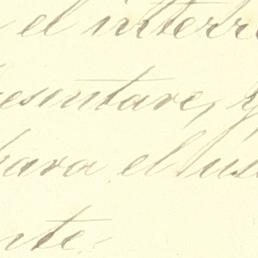 el interr
esentare, y
para el us
nte.